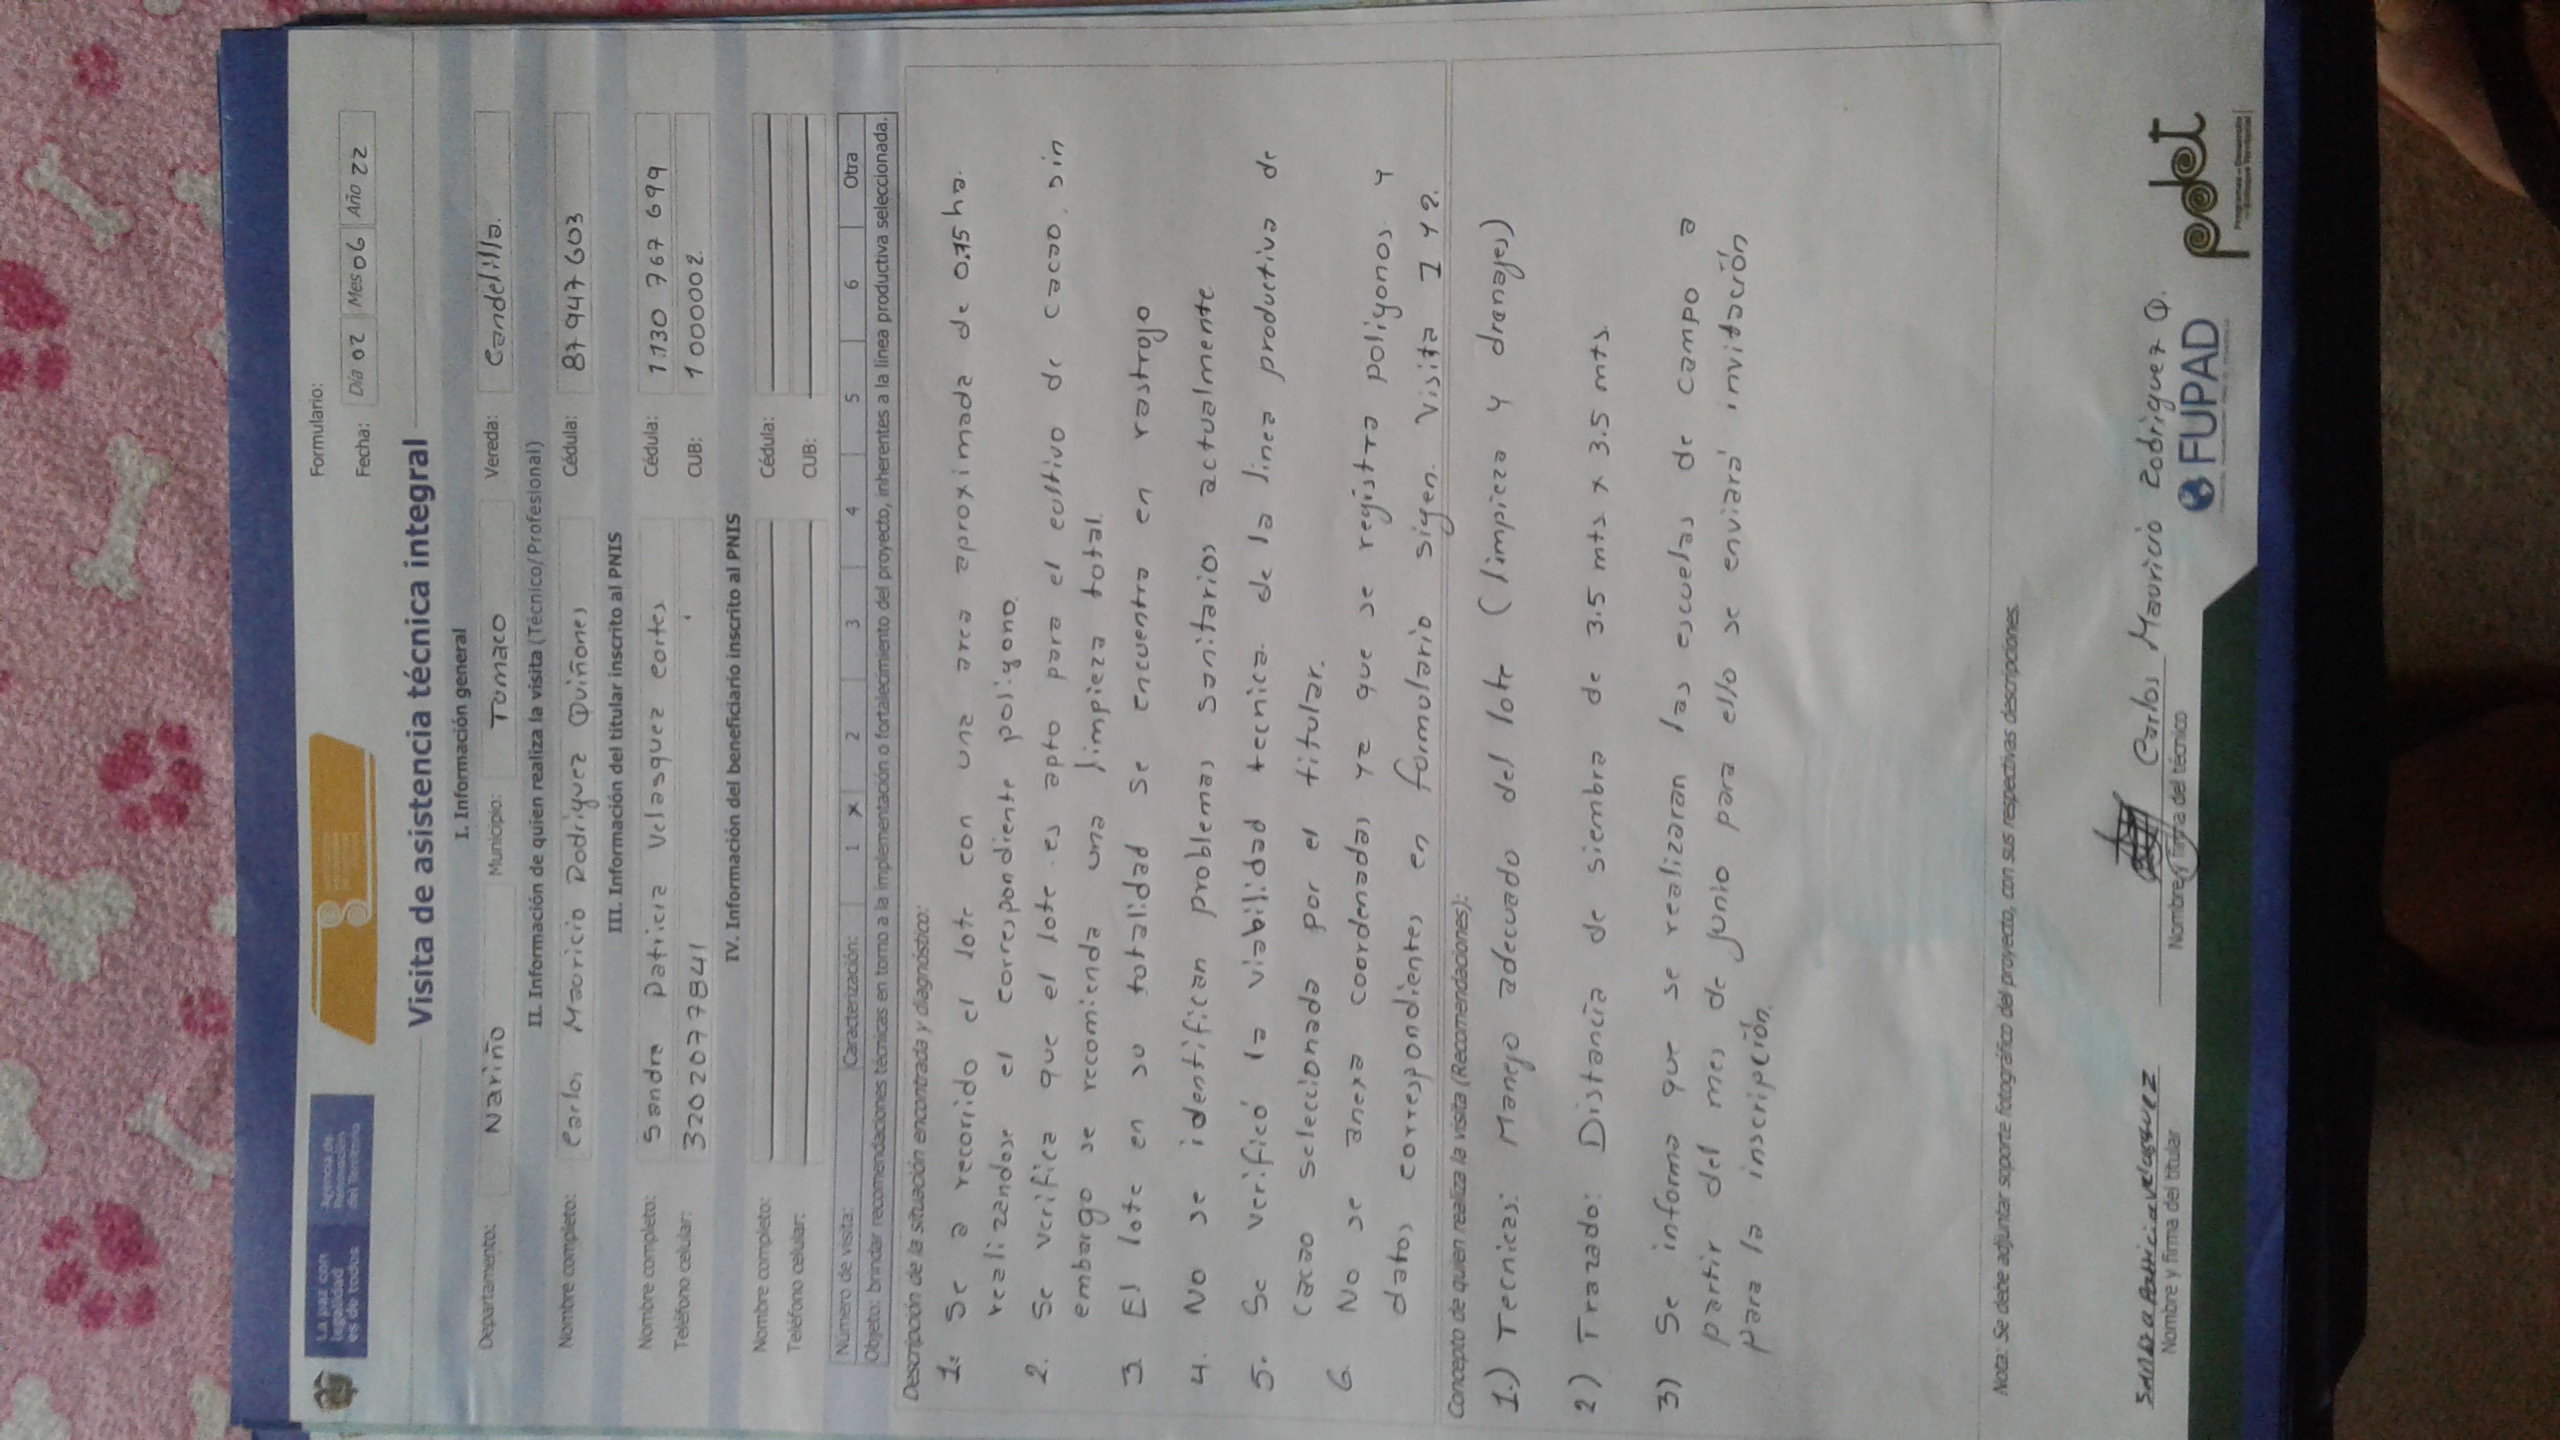 La paz con
legalidad
es de todos
Agencia de
Renovación
del Territorio
Formulario:
Fecha: Día 02 Mes 06 Año 22
Visita de asistencia técnica integral
I. Información general
Departamento: Nariño Municipio: Tumaco Vereda: Candelilla.
II. Información de quien realiza la visita (Técnico/Profesional)
Nombre completo: Carlos Mauricio Rodriguez Quiñones Cédula: 87 947 603
III. Información del titular inscrito al PNIS
Nombre completo: Sandra Patricia Velasquez cortes Cédula: 1.130 767 699
Teléfono celular: 3202077841 CUB: 1 000002
IV. Información del beneficiario inscrito al PNIS
Nombre completo: Cédula:
Teléfono celular: CUB:
Número de visita: Caracterización: 1 x 2 3 4 5 6 Otra
Objeto: brindar recomendaciones técnicas en torno a la implementación o fortalecimiento del proyecto, inherentes a la línea productiva seleccionada.
Descripción de la situación encontrada y diagnóstico:
1. Se a recorrido el lote con una area aproximada de 0.75 ha.
realizandose el correspondiente poligono.
2. Se verifica que el lote es apto para el cultivo de cacao, sin
embargo se recomienda una limpieza total.
3. El lote en su totalidad se encuentra en rastrojo
4. No se identifican problemas sanitarios actualmente
5. Se verificó la viabilidad tecnica de la linea productiva de
cacao seleccionada por el titular.
6. No se anexa coordenadas ya que se registra poligonos y
datos correspondientes en formulario sigen. Visita 1 y 2.
Concepto de quien realiza la visita (Recomendaciones):
1.) Tecnicas: Manejo adecuado del lote (limpieza y drenajes)
2) Trazado: Distancia de siembra de 3.5 mts x 3.5 mts.
3) Se informa que se realizaran las escuelas de campo a
partir del mes de junio para ello se enviará invitación
para la inscripción.
Nota: Se debe adjuntar soporte fotográfico del proyecto, con sus respectivas descripciones.
Sandra Patricia velasquez
Nombre y firma del titular
Carlos Mauricio Rodriguez Q.
Nombre y firma del técnico
FUPAD
pdet